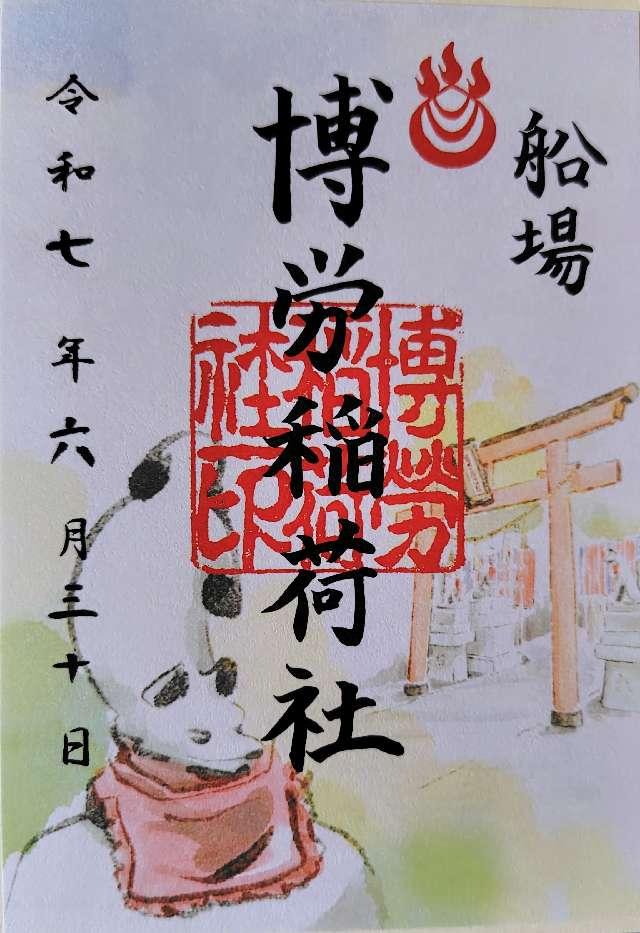 船場
博労稲荷社
博勞稲荷社印
令和七年六月三十日